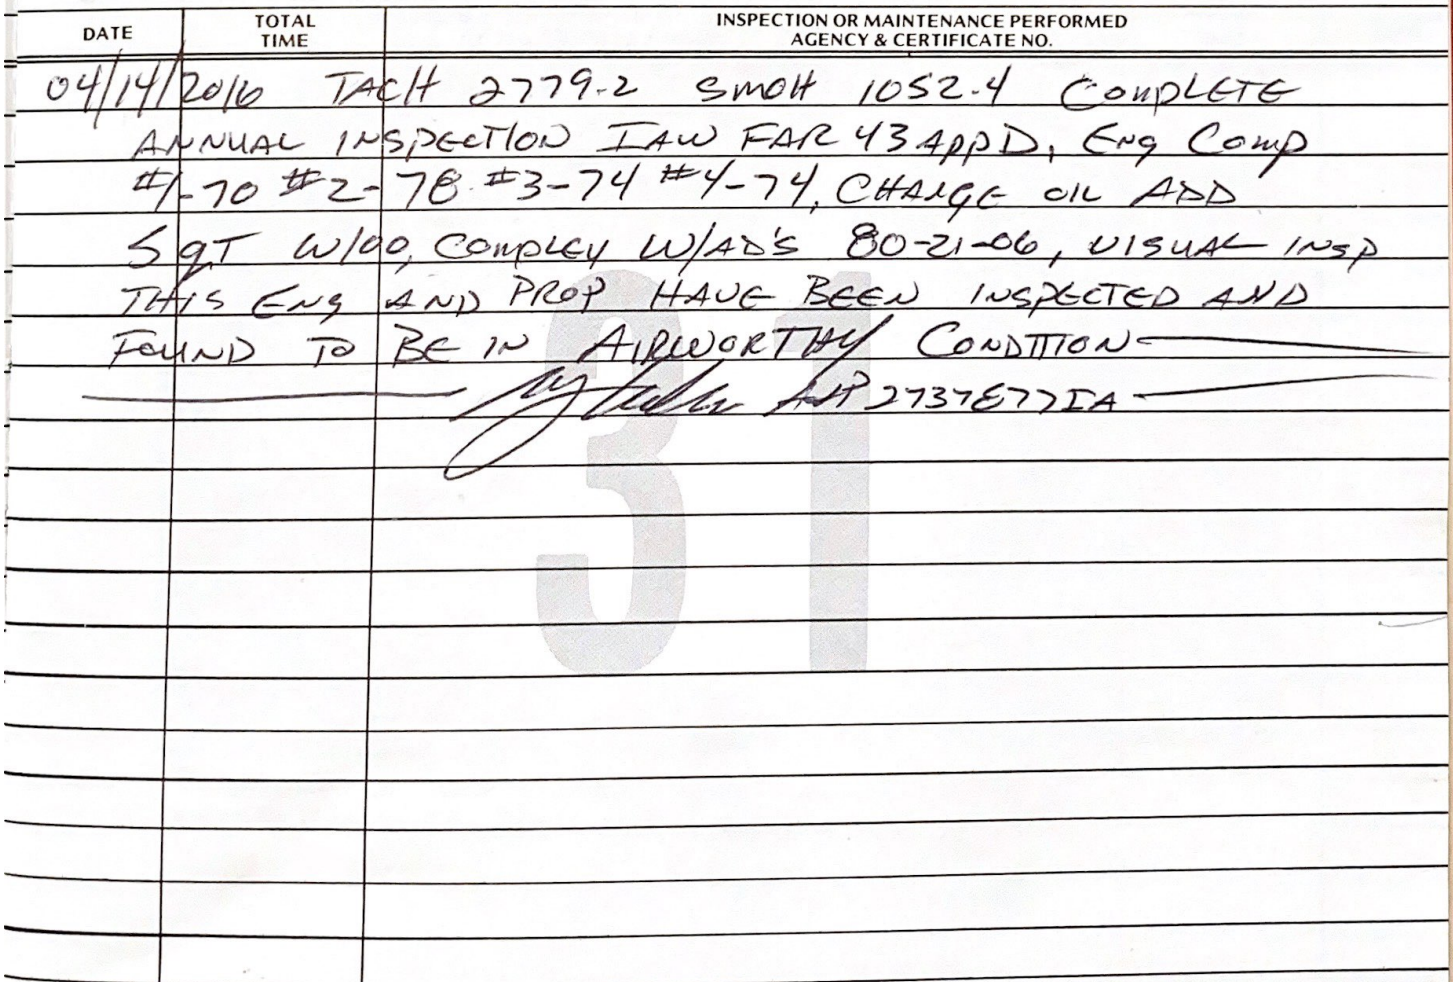 DATE TOTAL TIME INSPECTION OR MAINTENANCE PERFORMED
AGENCY & CERTIFICATE NO.
04/14/2016 TACH 2779.2 SMOH 1052.4 COMPLETE
ANNUAL INSPECTION IAW FAR 43 APP D, Eng Comp
#1-70 #2-78 #3-74 #4-74, CHANGE OIL ADD
5qT W/00, COMPLEY W/AD'S 80-21-06, VISUAL INSP
THIS Eng AND PROP HAVE BEEN INSPECTED AND
FOUND TO BE IN AIRWORTHY CONDITION
A&P 2737677IA
31